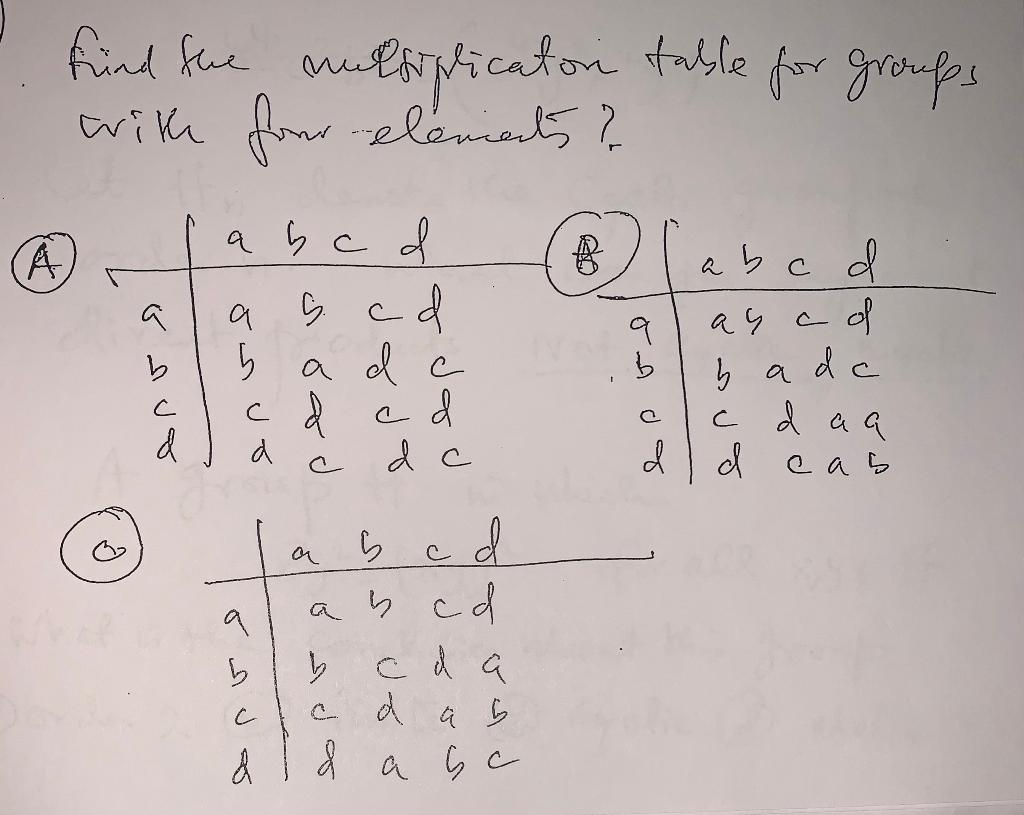 find the multiplicaton table for groups
with four elements ?
A
a b c d
a a b c d
b b a d c
c c d c d
d d c d c
B
a b c d
a a b c d
b b a d c
c c d a a
d d c a b
C
a b c d
a a b c d
b b c d a
c c d a b
d d a b c